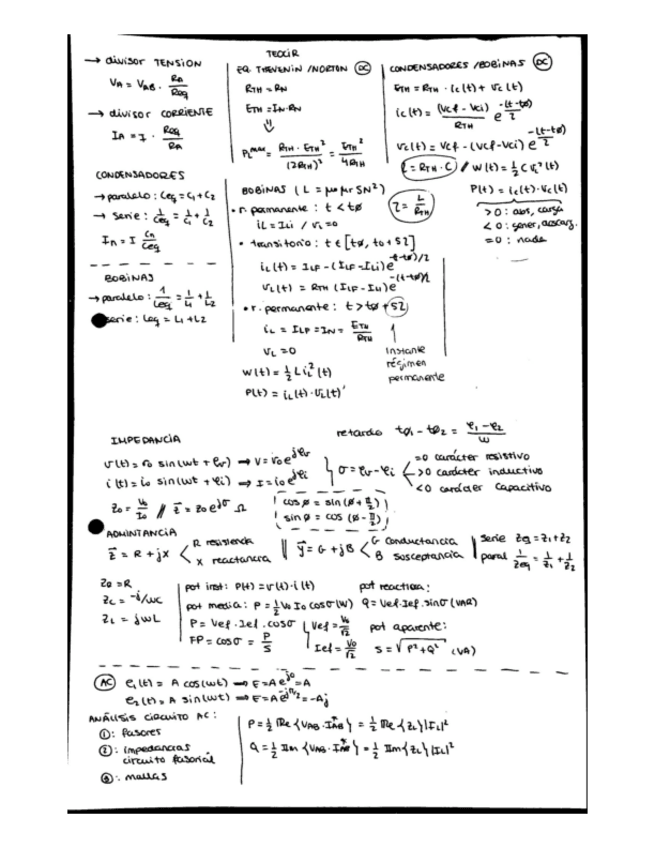 → divisor TENSION
V_A = V_AB · R_A / R_eq
→ divisor CORRIENTE
I_A = I · R_eq / R_A
CONDENSADORES
→ paralelo : C_eq = C_1 + C_2
→ serie : 1/C_eq = 1/C_1 + 1/C_2
I_n = I C_n / C_eq
BOBINAS
→ paralelo : 1/L_eq = 1/L_1 + 1/L_2
serie : L_eq = L_1 + L_2
TEOCIR
EQ. THEVENIN / NORTON (DC)
R_TH = R_N
E_TH = I_N · R_N
⇓
P_L^max = R_TH · E_TH² / (2R_TH)² = E_TH² / 4R_TH
BOBINAS ( L = μ₀ μr SN² )
τ = L / R_TH
• r. permanente : t < t∅
i_L = I_Li / V_L = 0
• transitorio : t ∈ [t∅, t₀ + 5τ]
i_L(t) = I_LF - (I_LF - I_Li) e^-(t-t∅)/τ
V_L(t) = R_TH (I_LF - I_Li) e^-(t-t∅)/τ
• r. permanente : t > t∅ + 5τ
i_L = I_LF = I_N = E_TH / R_TH
V_L = 0
W(t) = ½ L i_L²(t)
P(t) = i_L(t) · V_L(t)
instante
régimen
permanente
CONDENSADORES / BOBINAS (DC)
E_TH = R_TH · i_c(t) + V_c(t)
i_c(t) = (V_cf - V_ci) / R_TH e^-(t-t∅)/τ
V_c(t) = V_cf - (V_cf - V_ci) e^-(t-t∅)/τ
τ = R_TH · C // W(t) = ½ C V_c²(t)
P(t) = i_c(t) · V_c(t)
> 0 : abs, carga
< 0 : gener, descarg.
= 0 : nada
retardo t∅_1 - t∅_2 = φ_1 - φ_2 / ω
IMPEDANCIA
v(t) = v₀ sin(ωt + φ_v) → V = v₀ e^jφ_v
i(t) = i₀ sin(ωt + φ_i) → I = i₀ e^jφ_i
σ = φ_v - φ_i
= 0 carácter resistivo
> 0 carácter inductivo
< 0 carácter capacitivo
Z₀ = V₀ / I₀ // Z = Z₀ e^jσ Ω
cos ø = sin (ø + π/2)
sin ø = cos (ø - π/2)
ADMINTANCIA
Z = R + jX < R resistencia
X reactancia
Y = G + jB < G conductancia
B susceptancia
serie Z_eq = Z_1 + Z_2
paral 1/Z_eq = 1/Z_1 + 1/Z_2
Z_R = R
Z_C = -j/ωC
Z_L = jωL
pot inst : P(t) = v(t) · i(t)
pot media : P = ½ V₀ I₀ cos σ (W)
P = V_ef · I_ef · cos σ
FP = cos σ = P / S
V_ef = V₀ / √2
I_ef = I₀ / √2
pot reactiva :
Q = V_ef · I_ef · sin σ (VAR)
pot aparente :
S = √P² + Q² (VA)
(AC) e_1(t) = A cos(ωt) → E = A e^j0 = A
e_2(t) = A sin(ωt) → E = A e^-jπ/2 = -Aj
ANÁLISIS CIRCUITO AC :
① : fasores
② : impedancias
circuito fasorial
③ : mallas
P = ½ Re { V_AB · I_AB* } = ½ Re { Z_L } |I_L|²
Q = ½ Im { V_AB · I_AB* } = ½ Im { Z_L } |I_L|²